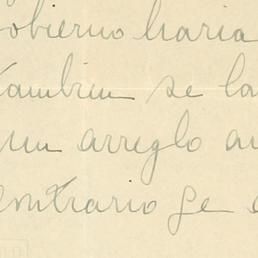 obierno haria
tambien se la
un arreglo a
contrario se